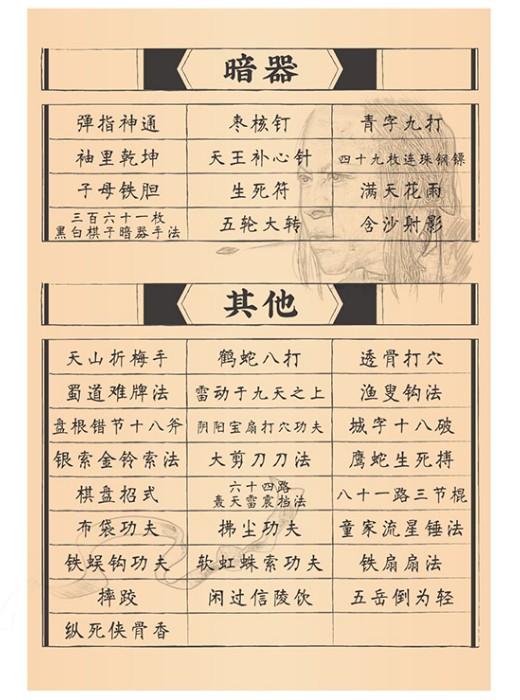 暗器
弹指神通 枣核钉 青字九打
袖里乾坤 天王补心针 四十九枚连珠钢镖
子母铁胆 生死符 满天花雨
三百六十一枚
黑白棋子暗器手法 五轮大转 含沙射影
其他
天山折梅手 鹤蛇八打 透骨打穴
蜀道难牌法 雷动于九天之上 渔叟钩法
盘根错节十八斧 阴阳宝扇打穴功夫 城字十八破
银索金铃索法 大剪刀刀法 鹰蛇生死搏
棋盘招式 六十四路
轰天雷震档法 八十一路三节棍
布袋功夫 拂尘功夫 童家流星锤法
铁蜈钩功夫 软虹蛛索功夫 铁扇扇法
摔跤 闲过信陵饮 五岳倒为轻
纵死侠骨香